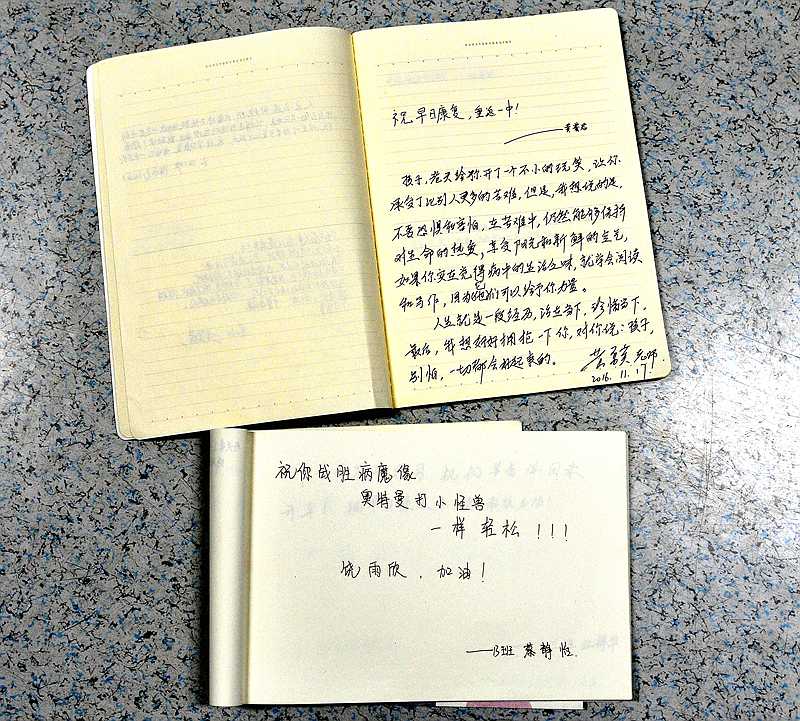 祝早日康复，重返一中！
孩子，老天给你开了一个不小的玩笑，让你
承受了比别人更多的苦难，但是，我想说的是，
不要恐惧和害怕，在苦难中，仍然能够保持
对生命的热爱，享受阳光和新鲜的空气，
如果你实在觉得病中的生活乏味，就学会阅读
和写作，因为它们可以给予你力量。
人生就是一段经历，活在当下，珍惜当下。
最后，我想好好拥抱一下你，对你说：孩子，
别怕，一切都会好起来的。
2016.11.17
祝你战胜病魔像
奥特曼打小怪兽
一样轻松！！！
饶雨欣，加油！
——13班 蔡静怡